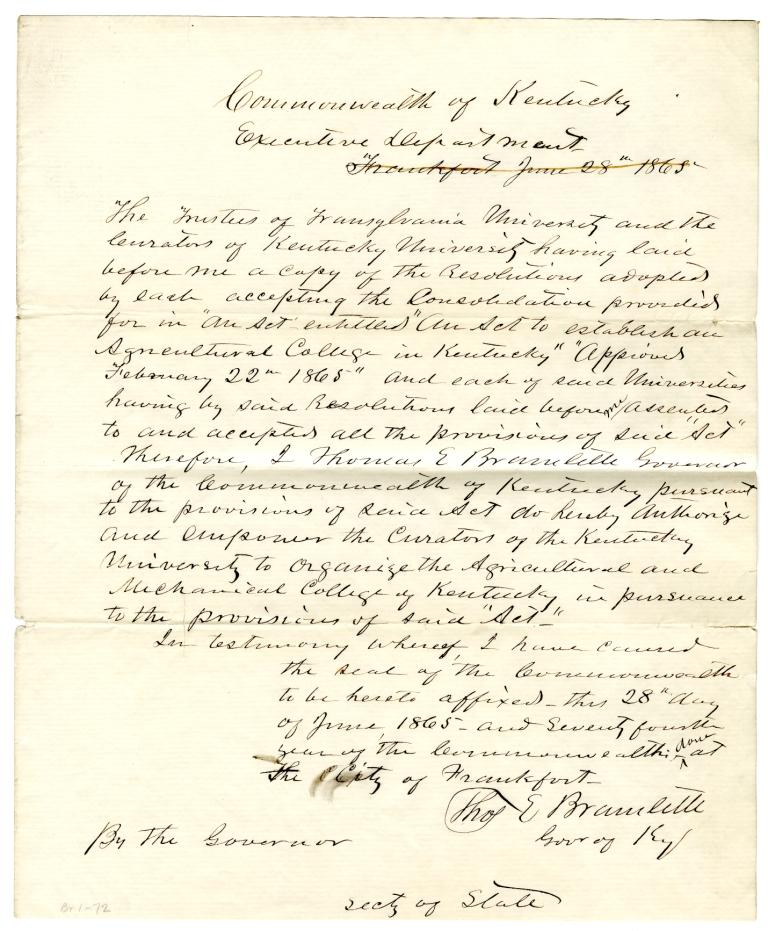 Commonwealth of Kentucky
Executive Department
Frankfort June 28th 1865
The Trustees of Transylvania University and the
Curators of Kentucky University having laid
before me a copy of the Resolutions adopted
by each accepting the Consolidation provided
for in "An Act entitled "An Act to establish an
Agricultural College in Kentucky" "Approved
February 22nd 1865" and each of said Universities
having by said Resolutions laid before me assented
to and accepted all the provisions of said "Act"
Therefore, I Thomas E Bramlette Governor
of the Commonwealth of Kentucky pursuant
to the provisions of said Act do hereby Authorize
and empower the Curators of the Kentucky
University to organize the Agricultural and
Mechanical College of Kentucky in pursuance
to the provisions of said "Act-"
In testimony whereof, I have caused
the seal of the Commonwealth
to be hereto affixed - this 28th day
of June, 1865 - and Seventy fourth
year of the Commonwealth; done at
the City of Frankfort-
Thos E Bramlette
Govr of Ky
By the Governor
secty of State
Br 1-72